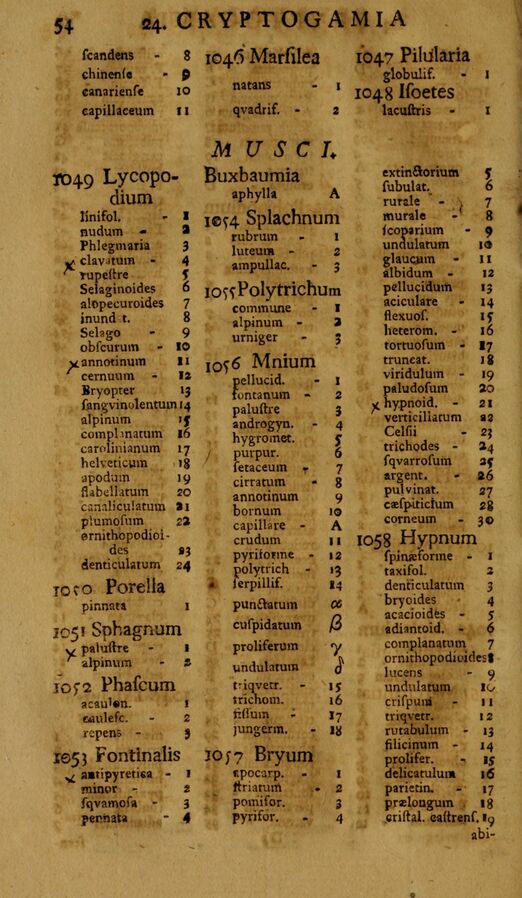 54 24. CRYPTOGAMIA
ſcandens - 8
chinenſe - 9
canarienſe 10
capillaceum 11
1046 Marſilea
natans - 1
qvadrif. - 2
1047 Pilularia
globulif. - 1
1048 Iſoetes
lacuſtris - 1
MUSCI.
1049 Lycopo-
dium
linifol. - 1
nudum - 2
Phlegmaria 3
clavatum - 4
rupeſtre 5
Selaginoides 6
alopecuroides 7
inund t. 8
Selago - 9
obſcurum - 10
annotinum 11
cernuum - 12
Bryopter 13
ſangvinolentum 14
alpinum 15
complanatum 16
carolinianum 17
helveticum 18
apodum 19
flabellatum 20
canaliculatum 21
plumoſum 22
ornithopodioi-
des 23
denticulatum 24
1050 Porella
pinnata 1
1051 Sphagnum
paluſtre - 1
alpinum - 2
1052 Phaſcum
acaulon. 1
cauleſc. - 2
repens - 3
1053 Fontinalis
antipyretica - 1
minor - 2
ſqvamoſa - 3
pennata - 4
Buxbaumia
aphylla A
1054 Splachnum
rubrum - 1
luteum - 2
ampullac. - 3
1055 Polytrichum
commune - 1
alpinum - 2
urniger - 3
1056 Mnium
pellucid. - 1
fontanum - 2
paluſtre 3
androgyn. - 4
hygromet. 5
purpur. 6
ſetaceum - 7
cirratum - 8
annotinum 9
bornum 10
capillare - A
crudum 11
pyriforme - 12
polytrich - 13
ſerpillif. 14
punctatum α
cuſpidatum β
proliferum γ
undulatum δ
triqvetr. - 15
trichom. 16
fiſſum - 17
jungerm. - 18
1057 Bryum
apocarp. - 1
ſtriatum - 2
pomifor. 3
pyrifor. - 4
extinctorium 5
ſubulat. 6
rurale - 7
murale - 8
ſcoparium - 9
undulatum 10
glaucum - 11
albidum - 12
pellucidum 13
aciculare - 14
flexuoſ. 15
heterom. - 16
tortuoſum - 17
truncat. 18
viridulum - 19
paludoſum 20
hypnoid. - 21
verticillatum 22
Celſii - 23
trichodes - 24
ſqvarroſum 25
argent. - 26
pulvinat. 27
cæſpiticium 28
corneum - 30
1058 Hypnum
ſpinæforme - 1
taxifol. 2
denticulatum 3
bryoides 4
acacioides - 5
adiantoid. - 6
complanatum 7
ornithopodioides 8
lucens - 9
undulatum 10
criſpum - 11
triqvetr. 12
rutabulum - 13
filicinum - 14
prolifer. - 15
delicatulum 16
parietin. - 17
prælongum 18
criſtal. caſtrenſ. 19
abi-